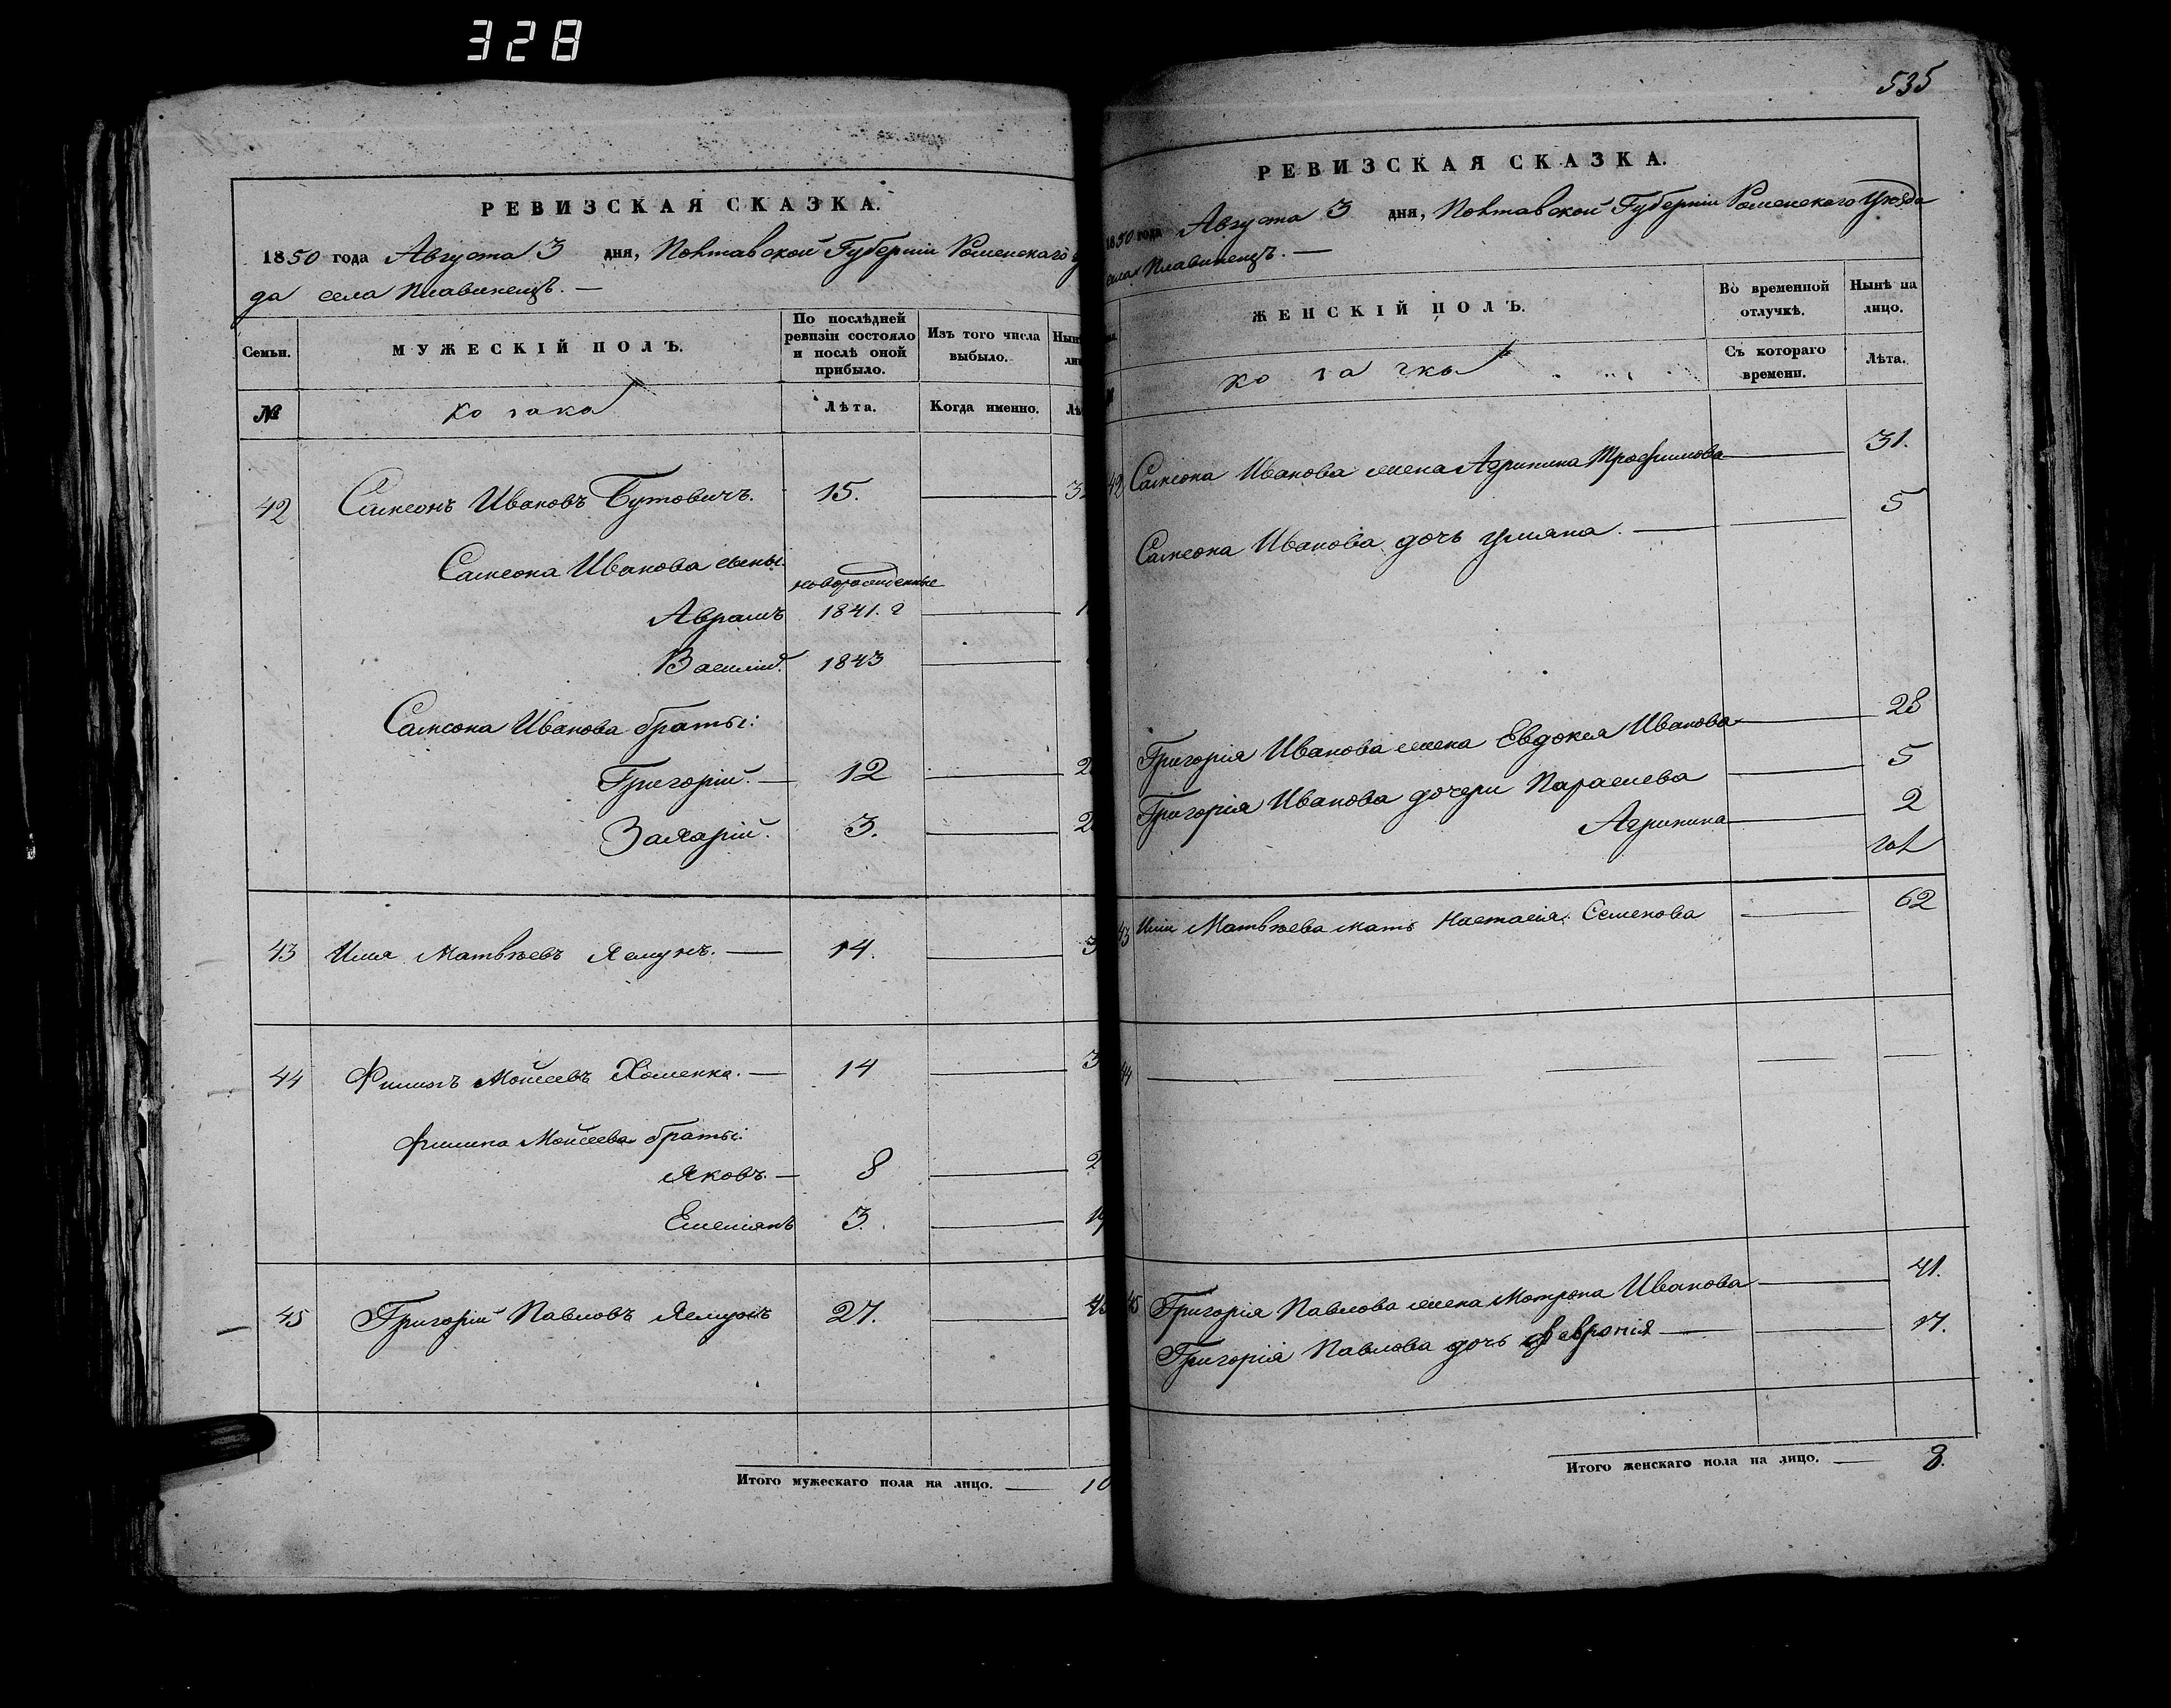 328
РЕВИЗСКАЯ СКАЗКА.
1850 года Августа 3 дня, Полтавской Губерніи Роменскаго у
да села Плавинещъ. —
Семьи.
МУЖЕСКІЙ ПОЛЪ.
По послѣдней ревизіи состояло и послѣ оной прибыло.
Изъ того числа выбыло.
№
козаки
Лѣта.
Когда именно.
42 Самсонъ Ивановъ Бутовичъ. 15.
Самсона Иванова сыны:
новорожденные
Аврамъ 1841. г
Василій. 1843
Самсона Иванова браты:
Григорій. — 12
Захарій. 3.
43 Илья Матвѣевъ 14.
44 Филипъ Моисеевъ Хоменко. — 14
Филипа Моисеева браты:
Яковъ. — 8
Емелянъ 3.
45 Григорій Павловъ 27.
Итого мужескаго пола на лицо. — 10
535
РЕВИЗСКАЯ СКАЗКА.
1850 года Августа 3 дня, Полтавской Губерніи Роменскаго Уѣзда
села Плавинещъ. —
ЖЕНСКІЙ ПОЛЪ.
Во временной отлучкѣ.
Нынѣ на лицо.
козачки
Съ котораго времени.
Лѣта.
42 Самсона Иванова жена Агрипина Трофимова 31.
Самсона Иванова дочь Улияна. — 5
Григорія Иванова жена Евдокия Иванова 28
Григорія Иванова дочери Параскева 5
Агрипина 2
43 Ильи Матвѣева мать Настасія Семенова 62
44
45 Григорія Павлова жена Мотрона Иванова 41.
Григорія Павлова дочь Февронія — 17.
Итого женскаго пола на лицо. — 8.